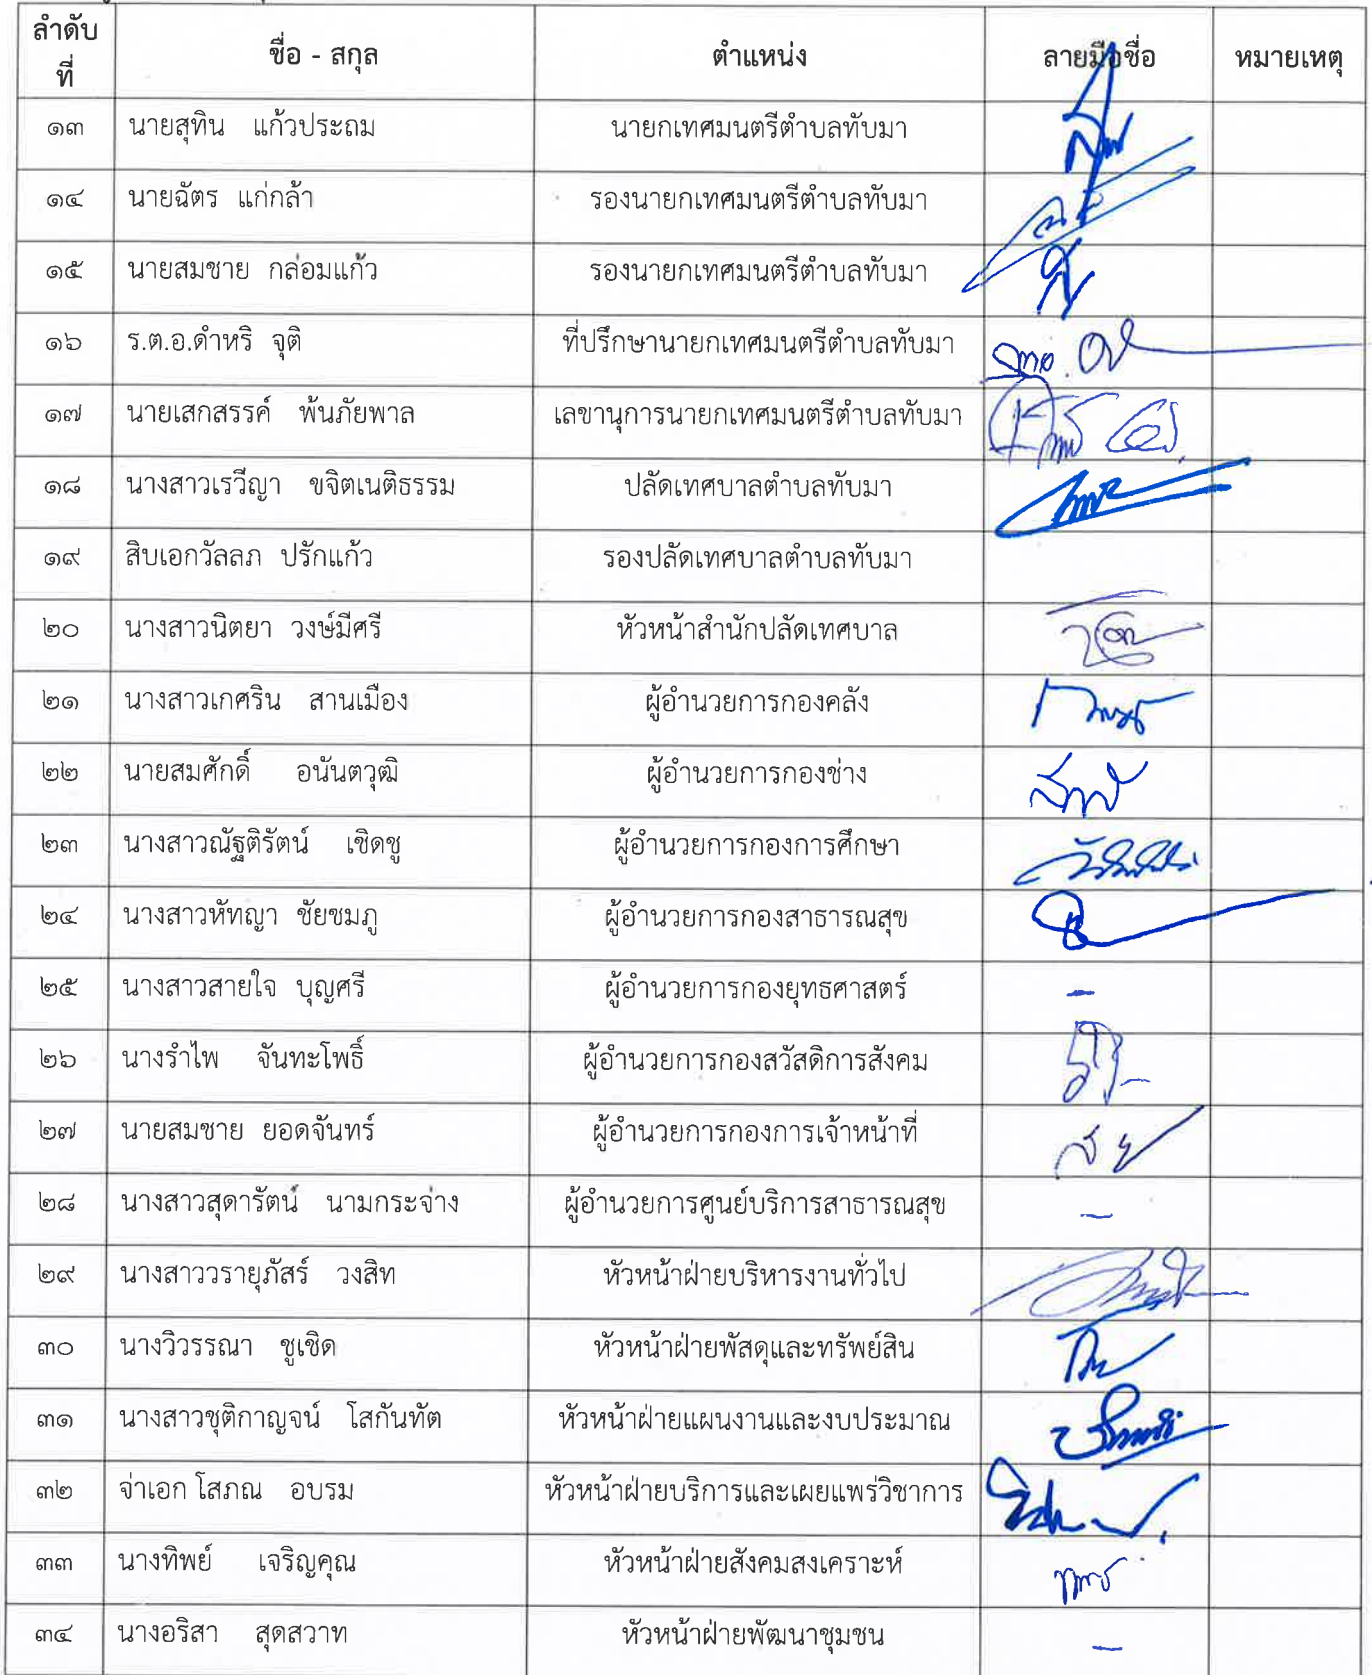 ลำดับที่ ชื่อ - สกุล ตำแหน่ง ลายมือชื่อ หมายเหตุ
๑๓ นายสุทิน แก้วประถม นายกเทศมนตรีตำบลทับมา
๑๔ นายฉัตร แก่กล้า รองนายกเทศมนตรีตำบลทับมา
๑๕ นายสมชาย กล่อมแก้ว รองนายกเทศมนตรีตำบลทับมา
๑๖ ร.ต.อ.ดำหริ จุติ ที่ปรึกษานายกเทศมนตรีตำบลทับมา
๑๗ นายเสกสรรค์ พ้นภัยพาล เลขานุการนายกเทศมนตรีตำบลทับมา
๑๘ นางสาวเรวีญา ขจิตเนติธรรม ปลัดเทศบาลตำบลทับมา
๑๙ สิบเอกวัลลภ ปรักแก้ว รองปลัดเทศบาลตำบลทับมา
๒๐ นางสาวนิตยา วงษ์มีศรี หัวหน้าสำนักปลัดเทศบาล
๒๑ นางสาวเกศริน สานเมือง ผู้อำนวยการกองคลัง
๒๒ นายสมศักดิ์ อนันตวุฒิ ผู้อำนวยการกองช่าง
๒๓ นางสาวณัฐติรัตน์ เชิดชู ผู้อำนวยการกองการศึกษา
๒๔ นางสาวหัทญา ชัยชมภู ผู้อำนวยการกองสาธารณสุข
๒๕ นางสาวสายใจ บุญศรี ผู้อำนวยการกองยุทธศาสตร์ -
๒๖ นางรำไพ จันทะโพธิ์ ผู้อำนวยการกองสวัสดิการสังคม
๒๗ นายสมชาย ยอดจันทร์ ผู้อำนวยการกองการเจ้าหน้าที่
๒๘ นางสาวสุดารัตน์ นามกระจ่าง ผู้อำนวยการศูนย์บริการสาธารณสุข -
๒๙ นางสาววรายุภัสร์ วงสิท หัวหน้าฝ่ายบริหารงานทั่วไป
๓๐ นางวิวรรณา ชูเชิด หัวหน้าฝ่ายพัสดุและทรัพย์สิน
๓๑ นางสาวชุติกาญจน์ โสกันทัต หัวหน้าฝ่ายแผนงานและงบประมาณ
๓๒ จ่าเอก โสภณ อบรม หัวหน้าฝ่ายบริการและเผยแพร่วิชาการ
๓๓ นางทิพย์ เจริญคุณ หัวหน้าฝ่ายสังคมสงเคราะห์
๓๔ นางอริสา สุดสวาท หัวหน้าฝ่ายพัฒนาชุมชน -